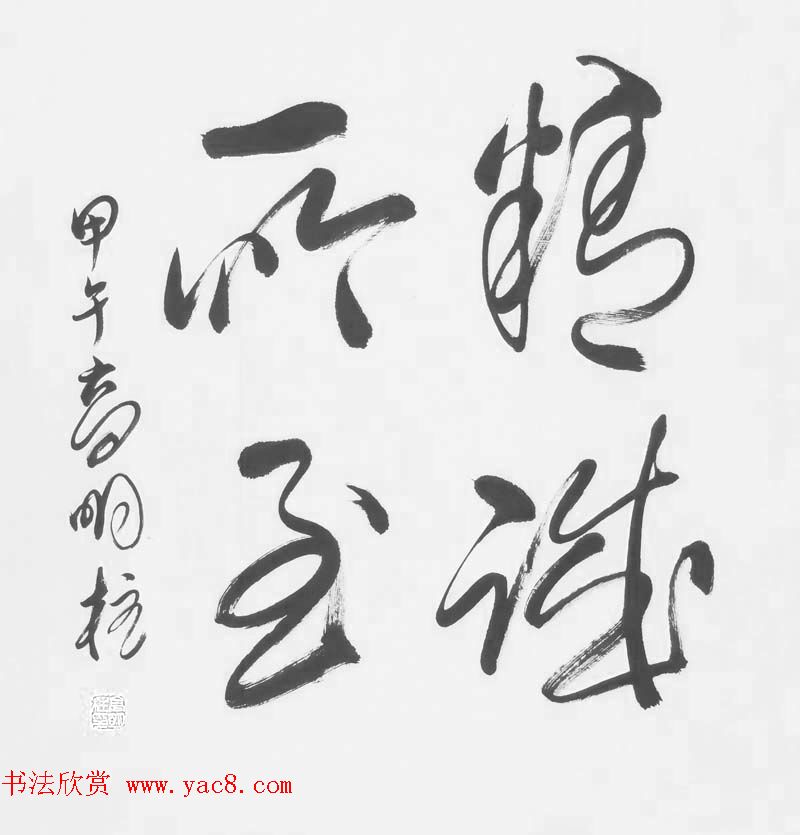 精誠
所至
甲午高明柱
书法欣赏 www.yac8.com